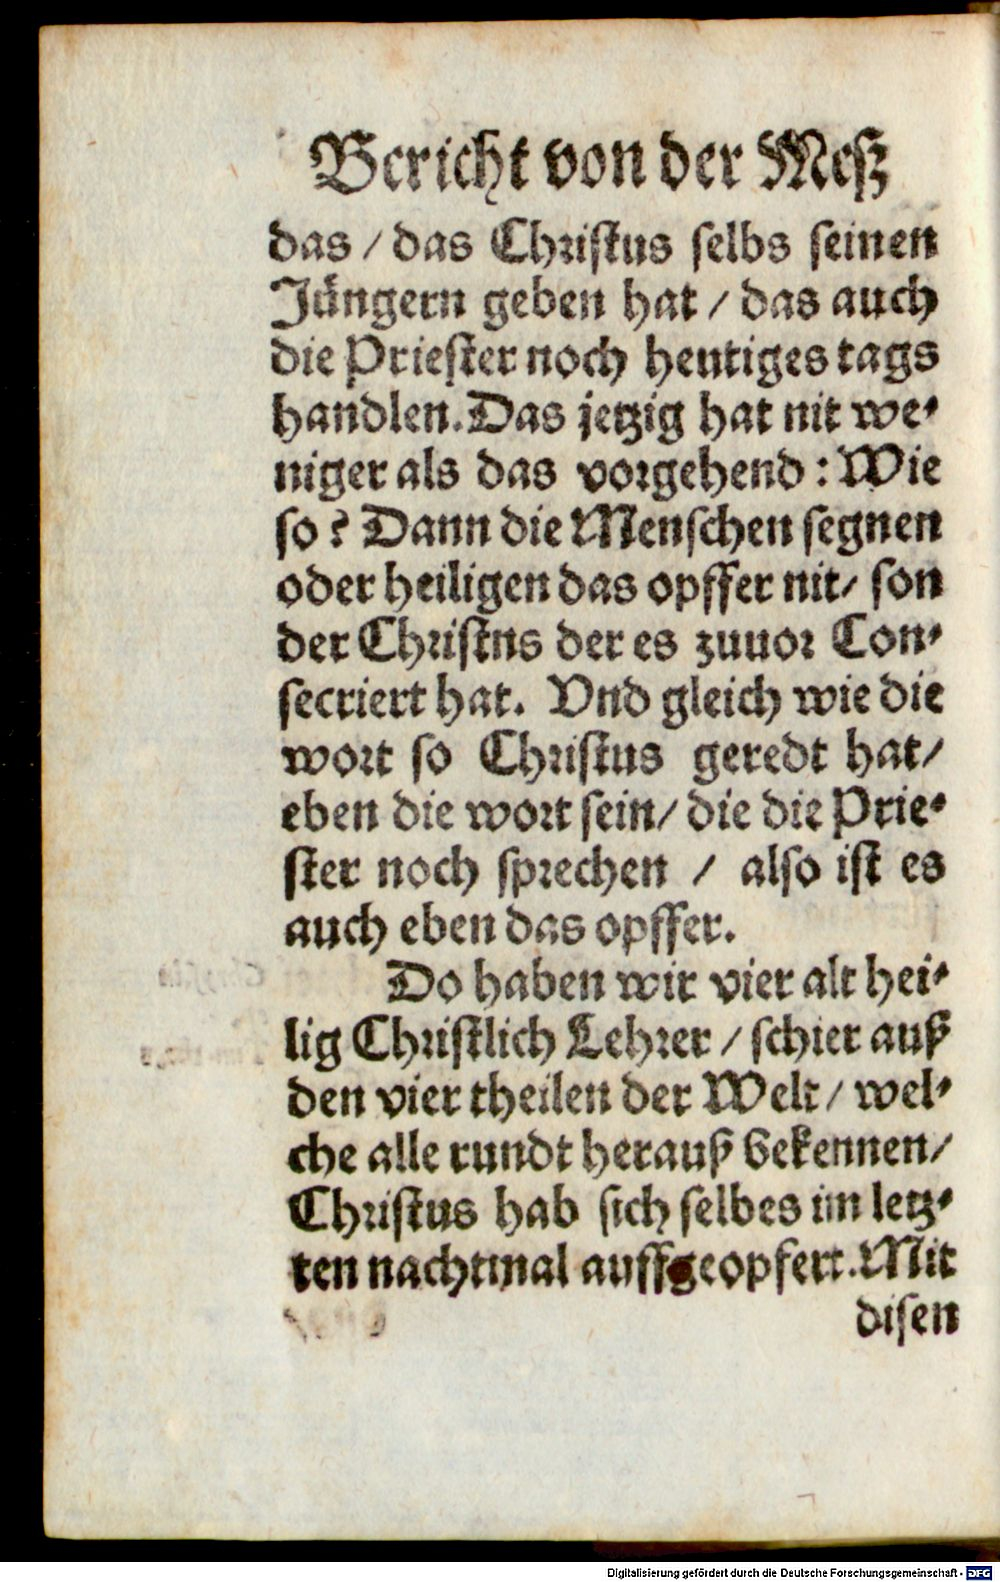 Bericht von der Meſz
das / das Chriſtus ſelbs ſeinen
Jüngern geben hat / das auch
die Prieſter noch heutiges tags
handlen. Das jetzig hat nit we⸗
niger als das vorgehend : Wie
ſo? Dann die Menſchen ſegnen
oder heiligen das opffer nit / ſon
der Chriſtns der es zuuor Con⸗
ſecriert hat. Vnd gleich wie die
wort ſo Chriſtus geredt hat /
eben die wort ſein / die die Prie⸗
ſter noch ſprechen / alſo iſt es
auch eben das opffer.
Do haben wir vier alt hei⸗
lig Chriſtlich Lehrer / ſchier auß
den vier theilen der Welt / wel⸗
che alle rundt herauß bekennen /
Chriſtus hab ſich ſelbes im letz⸗
ten nachtmal auffgeopfert. Mit
diſen
Digitalisierung gefördert durch die Deutsche Forschungsgemeinschaft - DFG